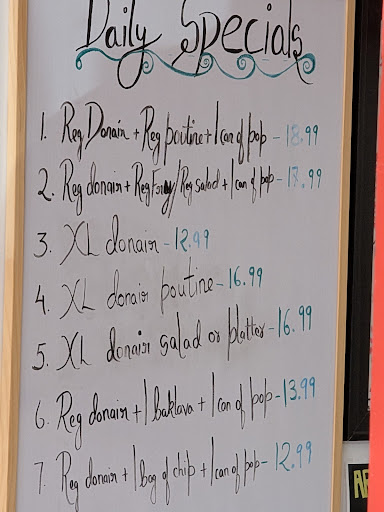 Daily Specials
1. Reg Donair + Reg poutine + 1 can of pop - 18.99
2. Reg donair + Reg Fry/Reg salad + 1 can of pop - 17.99
3. XL donair - 12.99
4. XL donair poutine - 16.99
5. XL donair salad or platter - 16.99
6. Reg donair + 1 baklava + 1 can of pop - 13.99
7 Reg donair + 1 bag of chip + 1 can of pop - 12.99